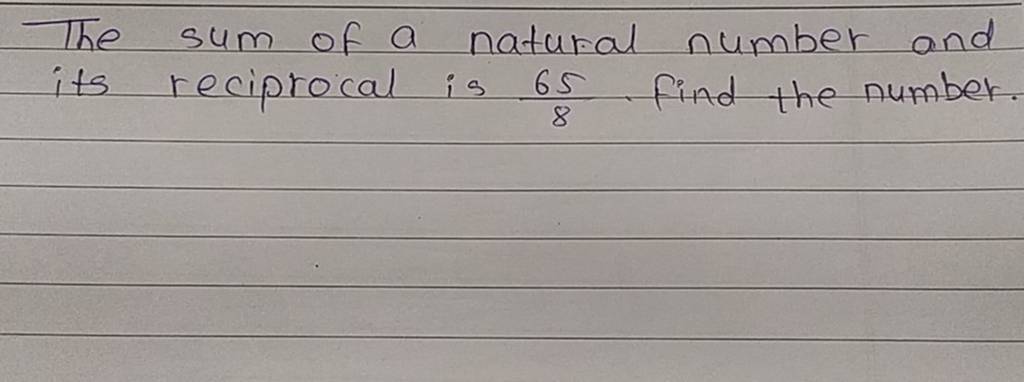 The sum of a natural number and
its reciprocal is 65/8. find the number.